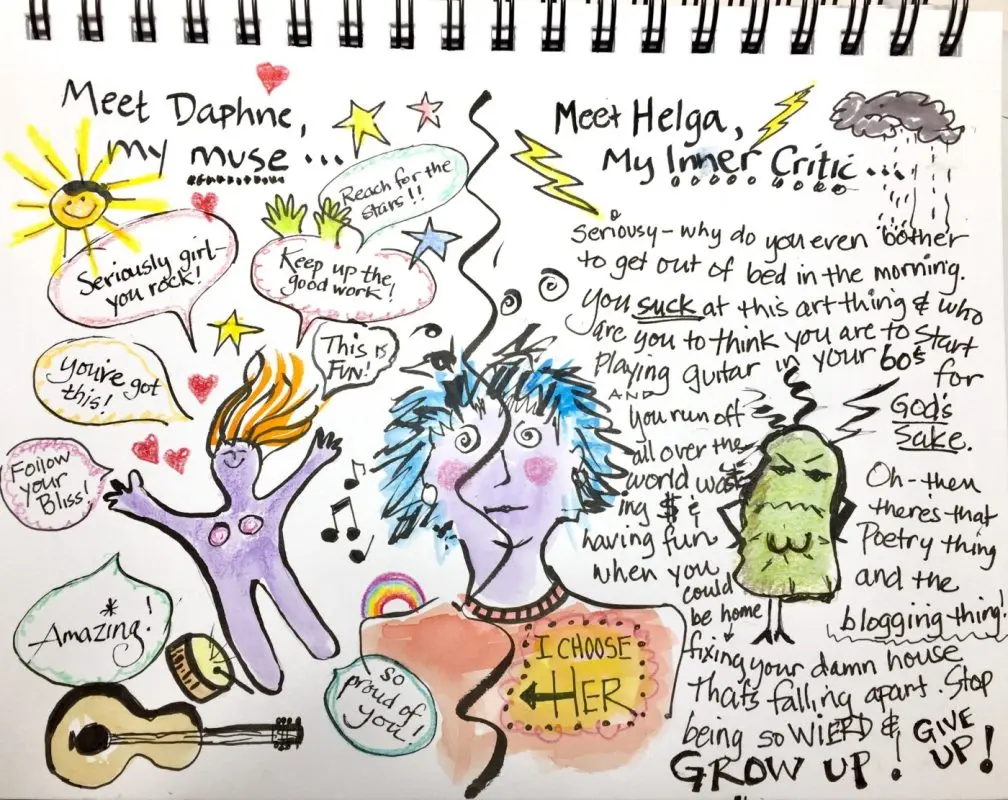 Meet Daphne,
my muse...
Reach for the
stars!!
Seriously girl-
you rock!
Keep up the
good work!
This is
FUN!
You've got
this!
Follow
your
Bliss!
Amazing!
so
proud of
you!
I CHOOSE
HER
Meet Helga,
My Inner Critic...
Seriousy- why do you even bother
to get out of bed in the morning.
You suck at this art thing & who
are you to think you are to start
Playing guitar in your 60s for
God's
Sake.
AND
you run off
all over the
world wast
ing $ &
having fun
when you
could
be home
fixing your damn house
that's falling apart. Stop
being so WIERD &
GROW UP!
GIVE
UP!
Oh-then
theres that
Poetry thing
and the
blogging thing.